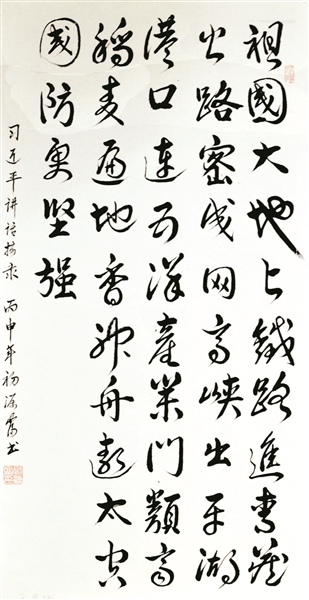 祖國大地上鐵路進青藏
公路密成网高峡出平湖
港口連五洋產業門類齊
稻麦遍地香神舟遨太空
國防更坚强
习近平讲话摘录 丙申年初 书